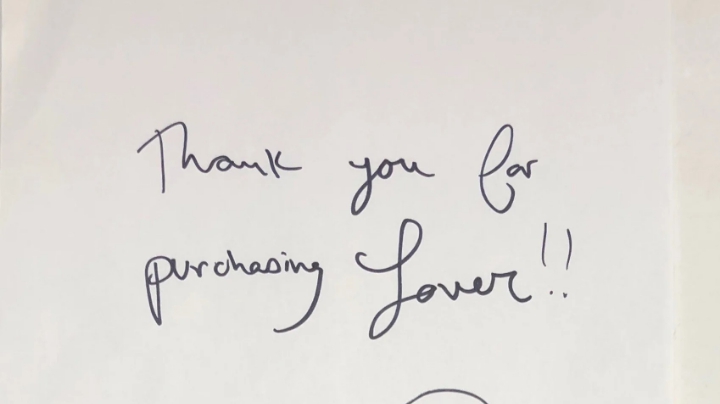 Thank you for
purchasing Lover!!